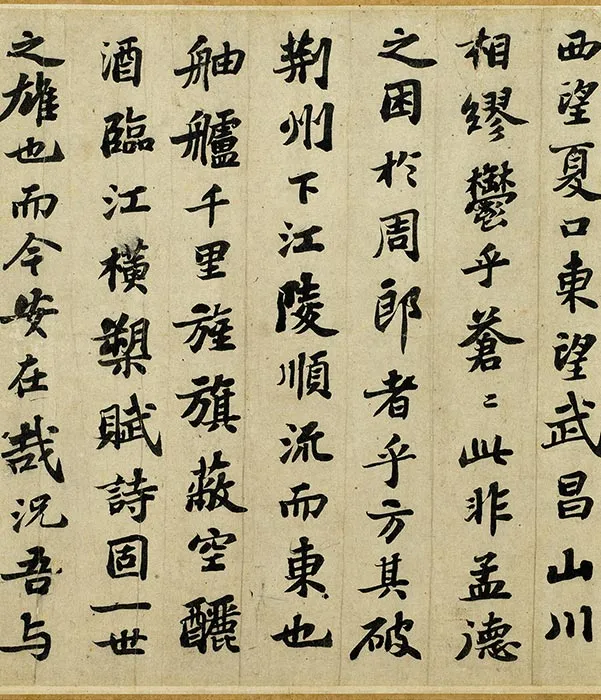 西望夏口東望武昌山川
相繆鬱乎蒼〻此非孟德
之困於周郎者乎方其破
荆州下江陵順流而東也
舳艫千里旌旗蔽空釃
酒臨江橫槊賦詩固一世
之雄也而今安在哉況吾与